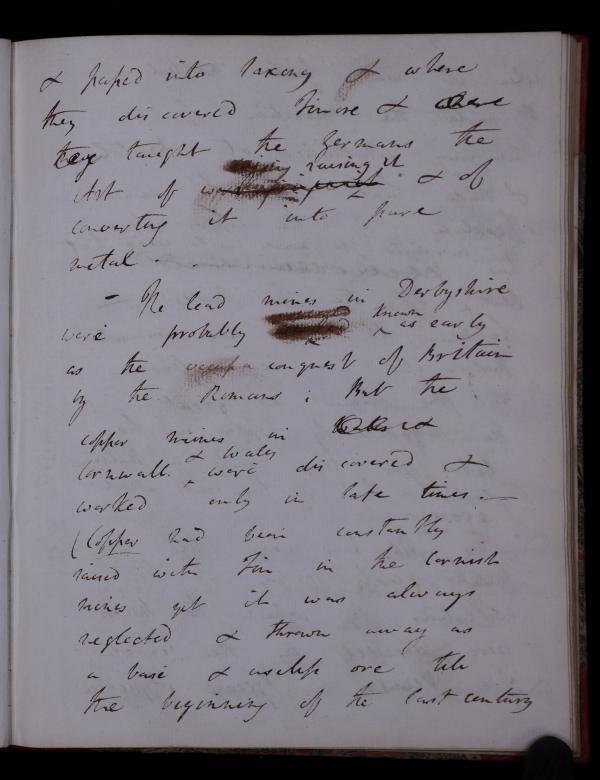 & passed into Saxony & where
they discovered Tin ore & where
they taught the Germans the
raising it
Art of & of
converting it into pure
metal. -
- The lead mines in Derbyshire
known
were probably as early
as the occupa conquest of Britain
by the Romans; But the
copper mines in &
& Wales
Cornwall were discovered &
worked only in late times. —
(Copper had been constantly
raised with Tin in the Cornish
mines yet it was always
neglected & thrown away as
a base & useless ore till
the beginning of the last century